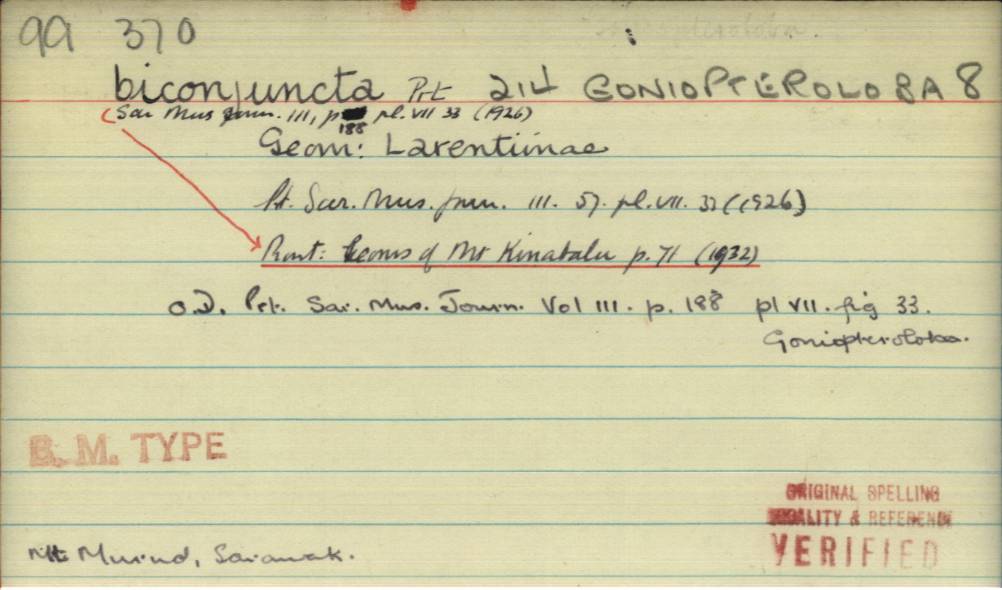 99 370
biconjuncta Prt 214 GONIOPTEROLOBA 8
(Sar Mus Journ. III, p 188 pl. VII 33 (1926)
Geom: Larentiinae
Pt. Sar. Mus. Journ. III. 57. pl. VII. 33 (1926)
Prout: Geoms of Mt Kinabalu p. 71 (1932)
O.D. Prt. Sar. Mus. Journ. Vol III. p. 188 pl VII. fig 33.
Goniopteroloba.
B. M. TYPE
ORIGINAL SPELLING
LOCALITY & REFERENCE
VERIFIED
Mt Murud, Sarawak.